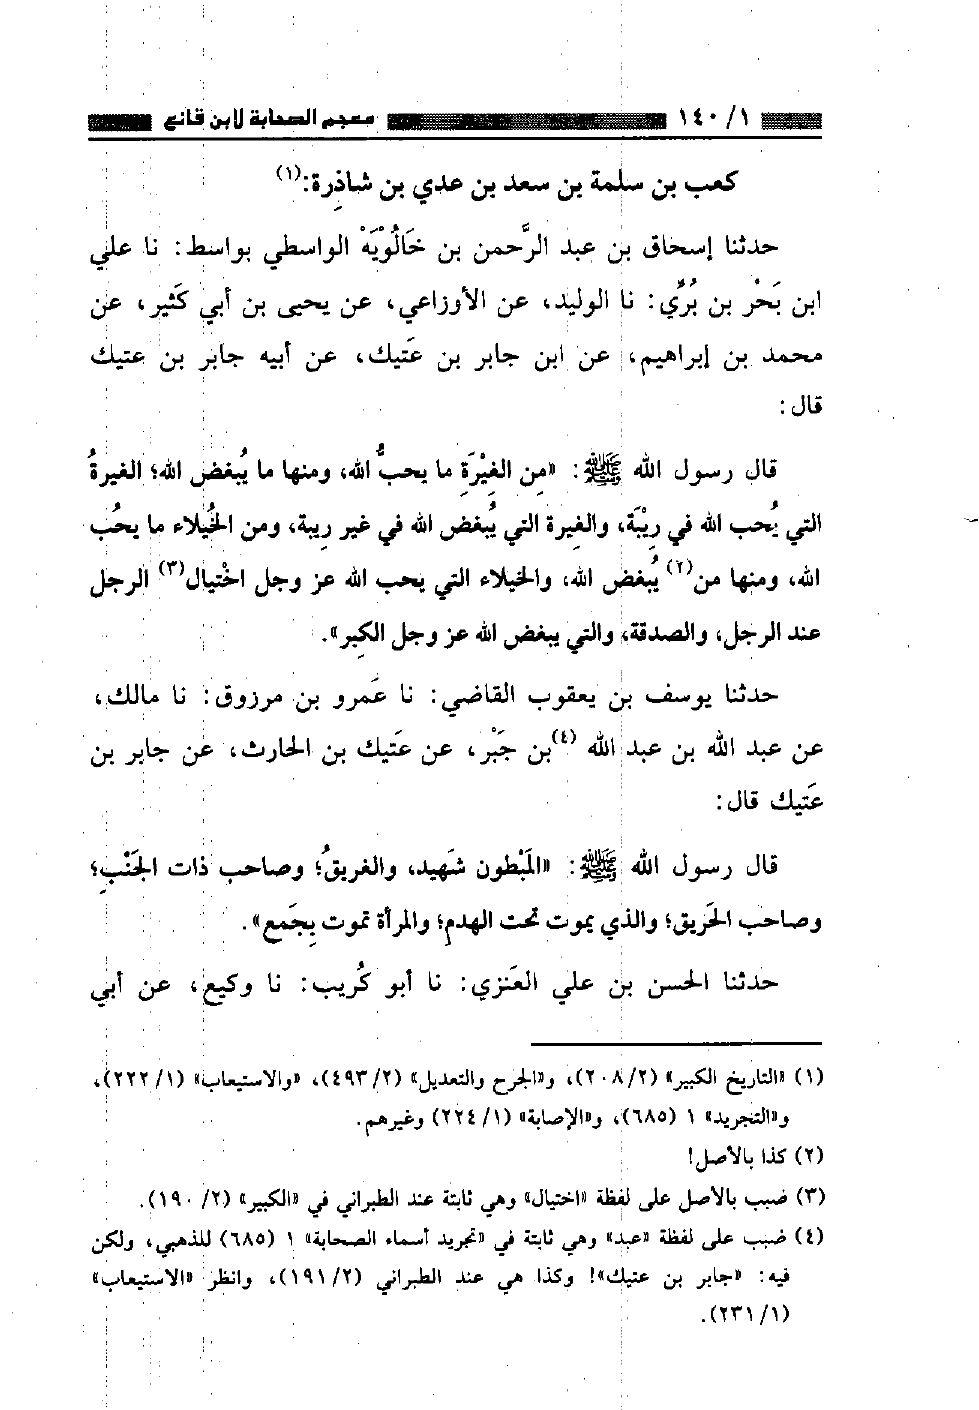 ١/ ١٤٠ معجم الصحابة لابن قانع
كعب بن سلمة بن سعد بن عدي بن شاذِرة:(١)
حدثنا إسحاق بن عبد الرَّحمن بن خَالُوْيَهْ الواسطي بواسط: نا علي
ابن بَحْر بن بُرِّي: نا الوليد، عن الأوزاعي، عن يحيى بن أبي كَثير، عن
محمد بن إبراهيم، عن ابن جابر بن عَتيك، عن أبيه جابر بن عتيك
قال:
قال رسول الله ﷺ: «مِن الغِيْرَةِ ما يحبُّ الله، ومنها ما يُبغض الله؛ الغيرةُ
التي يُحب الله في رِيْبَة، والغيرة التي يُبغض الله في غير رِيبة، ومن الخُيلاء ما يحُب
الله، ومنها من(٢) يُبغض الله، والخيلاء التي يحب الله عز وجل اخْتيال(٣) الرجل
عند الرجل، والصدقة، والتي يبغض الله عز وجل الكِبر».
حدثنا يوسف بن يعقوب القاضي: نا عَمرو بن مرزوق: نا مالك،
عن عبد الله بن عبد الله (٤)بن جَبْر، عن عَتيك بن الحارث، عن جابر بن
عَتيك قال:
قال رسول الله ﷺ: «المَبْطون شَهيد، والغريقُ؛ وصاحب ذات الجَنْبِ؛
وصاحب الحَريق؛ والذي يموت تحت الهدم؛ والمرأة تموت بِجَمع».
حدثنا الحسن بن علي العَنزي: نا أبو كُريب: نا وكيع، عن أبي
(١) «التاريخ الكبير» (٢/ ٢٠٨)، و«الجرح والتعديل» (٢/ ٤٩٣)، «والاستيعاب» (١/ ٢٢٢)،
و«التجريد» ١ (٦٨٥)، و«الإصابة» (١/ ٢٢٤) وغيرهم.
(٢) كذا بالأصل!
(٣) ضبب بالأصل على لفظة «اختيال» وهي ثابتة عند الطبراني في «الكبير» (٢/ ١٩٠).
(٤) ضبب على لفظة «عبد» وهي ثابتة في «تجريد أسماء الصحابة» ١ (٦٨٥) للذهبي، ولكن
فيه: «جابر بن عتيك»! وكذا هي عند الطبراني (٢/ ١٩١)، وانظر «الاستيعاب»
(١/ ٢٣١).